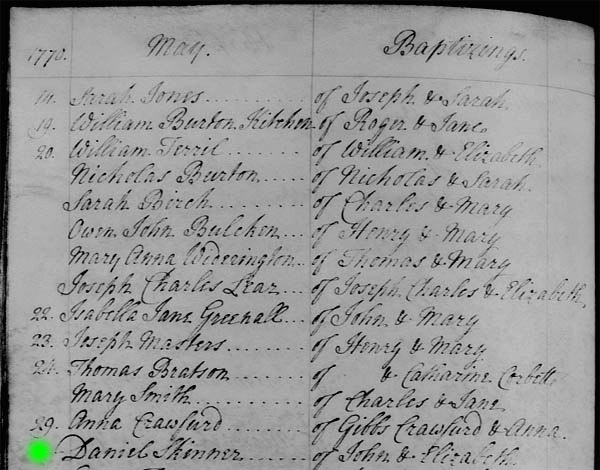 1770. May. Baptizings.
19. Sarah Jones of Joseph & Sarah
19. William Burton Kitchen of Roger & Jane
20. William Terril of William & Elizabeth
Nicholas Burton of Nicholas & Sarah
Sarah Birch of Charles & Mary
Owen John Bulchen of Henry & Mary
Mary Anna Widerington of Thomas & Mary
Joseph Charles Lear of Joseph Charles & Elizabeth
22. Isabella Jane Greenall of John & Mary
23. Joseph Masters of Henry & Mary
24. Thomas Bratson of & Catharine Corbett
Mary Smith of Charles & Jane
29. Anna Crawfurd of Gibbs Crawfurd & Anna
Daniel Skinner of John & Elizabeth